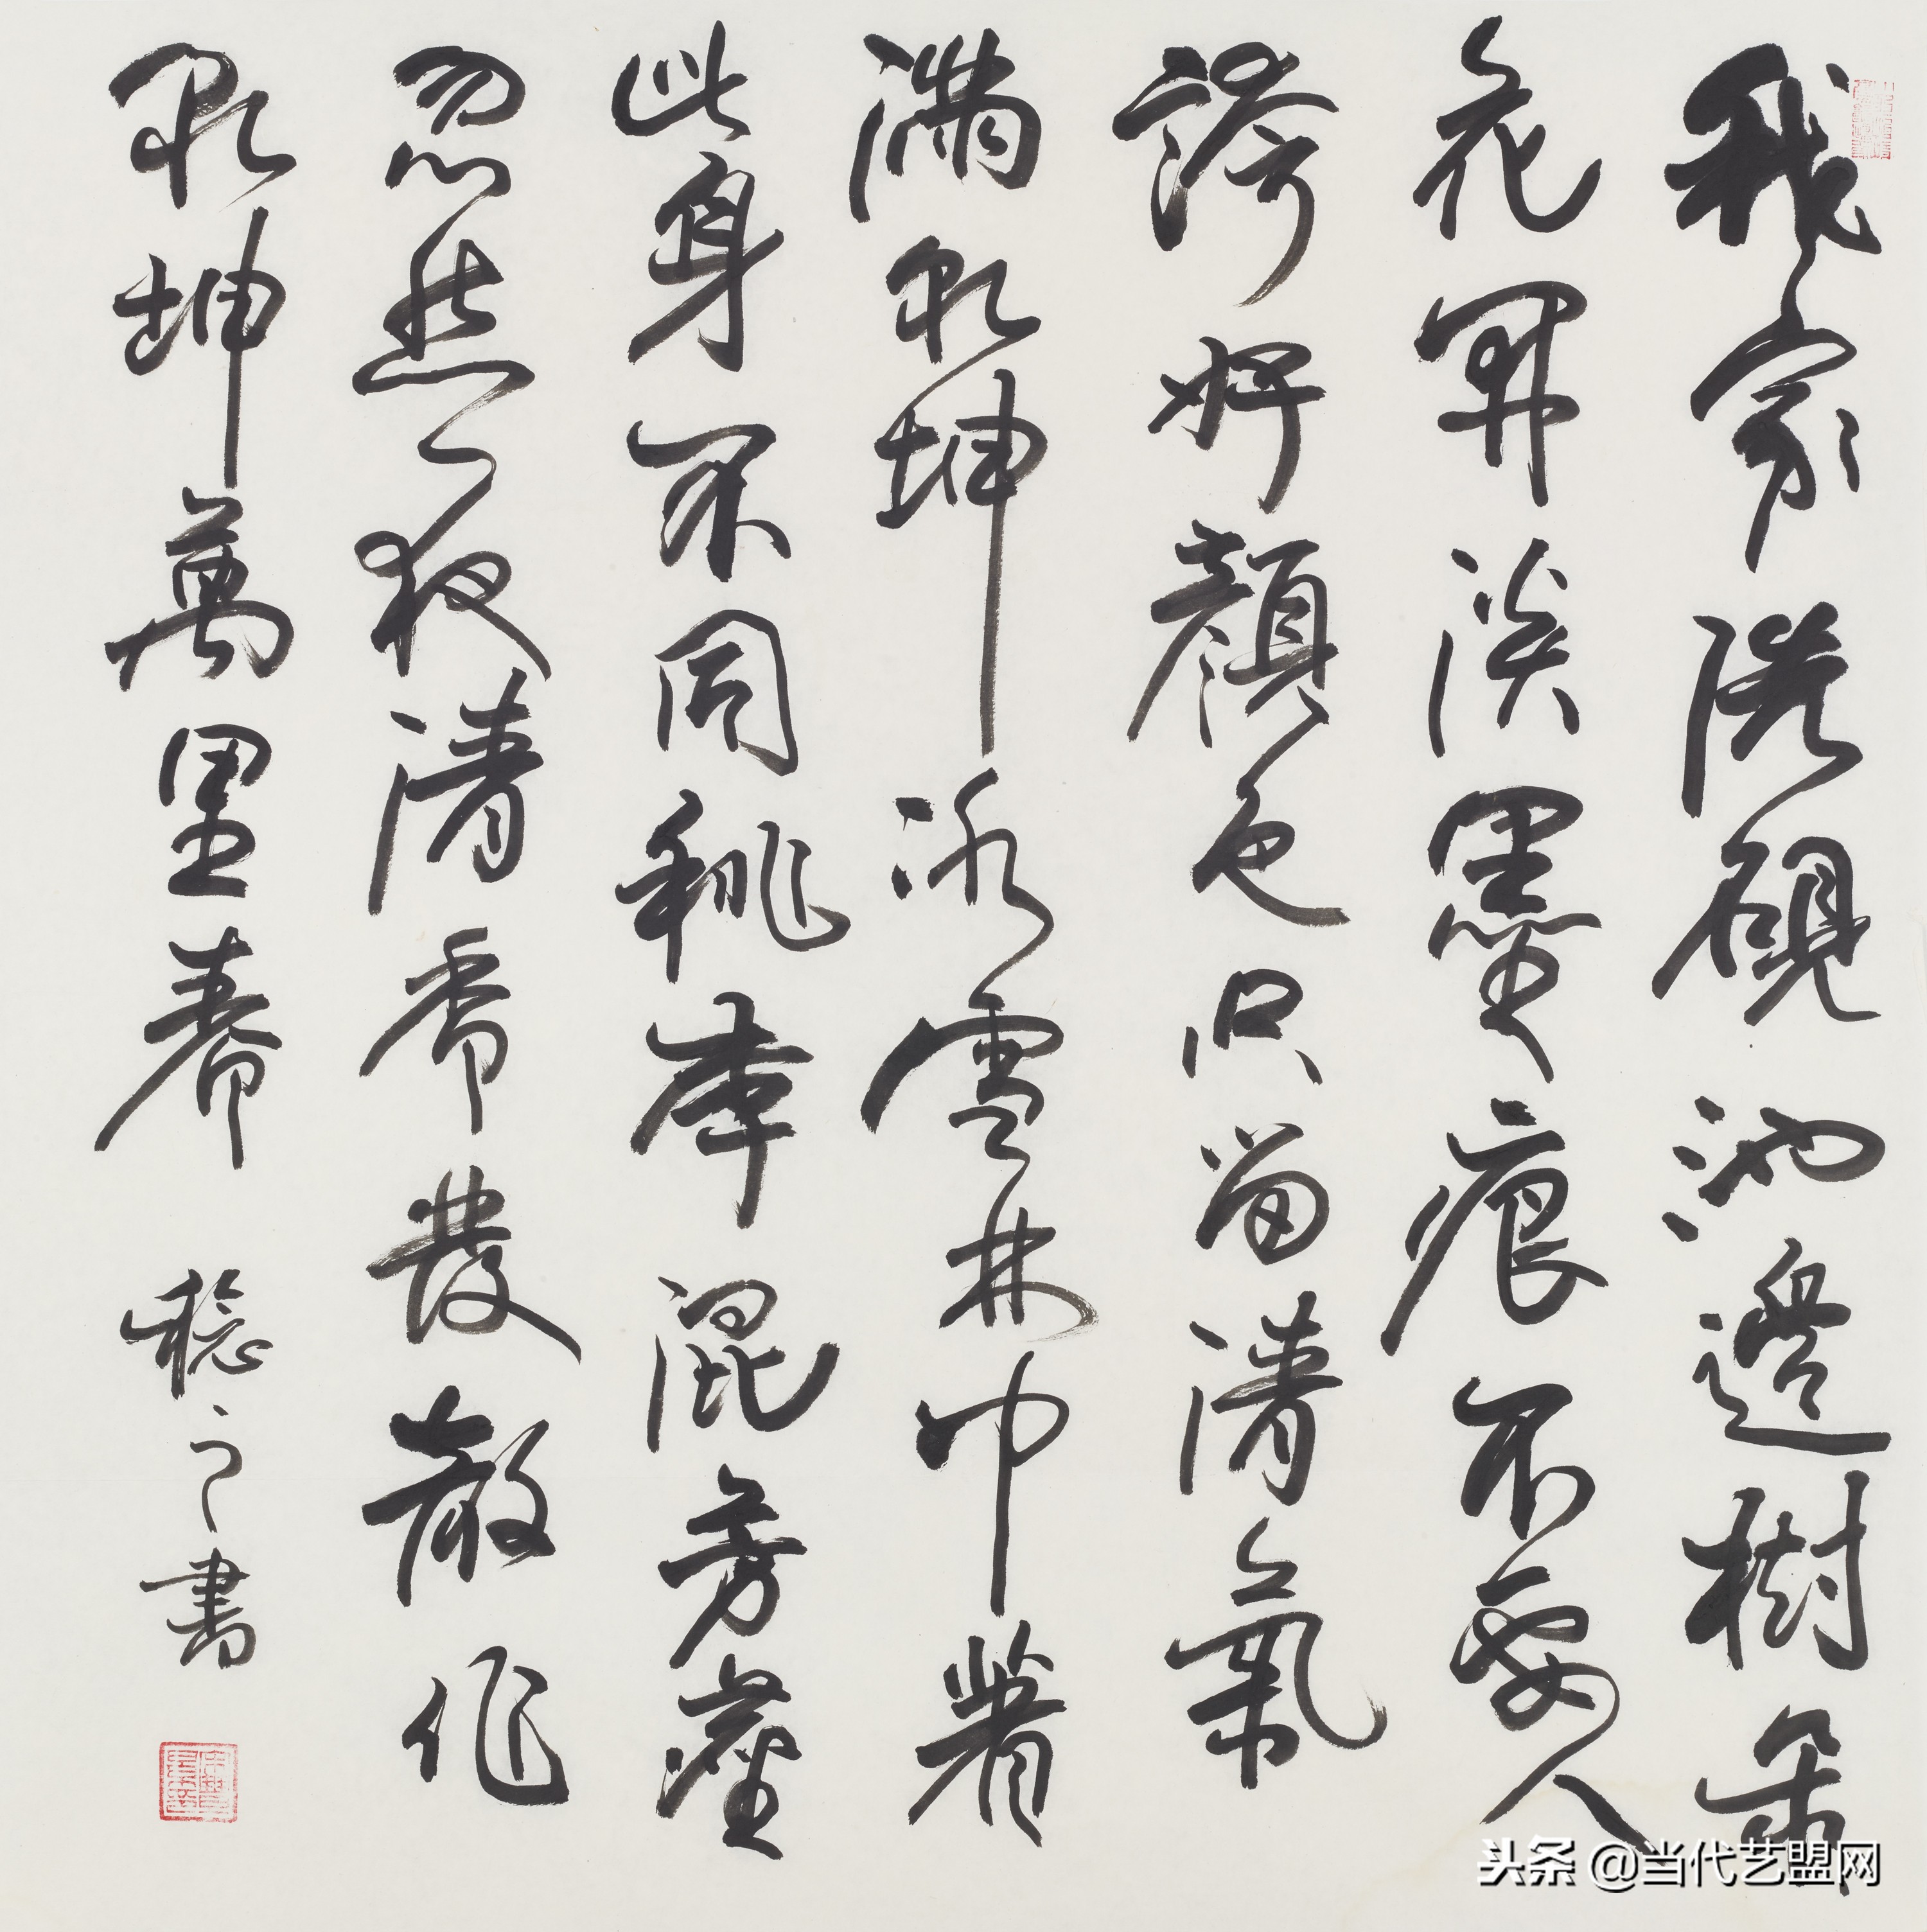 我家洗硯池邊樹朵
花開淡墨痕不要人
誇好顏色只留清氣
滿乾坤冰雪林中著
此身不同桃李混芳塵
忽然一夜清香發散作
乾坤萬里春 稳之書
头条 @当代艺盟网